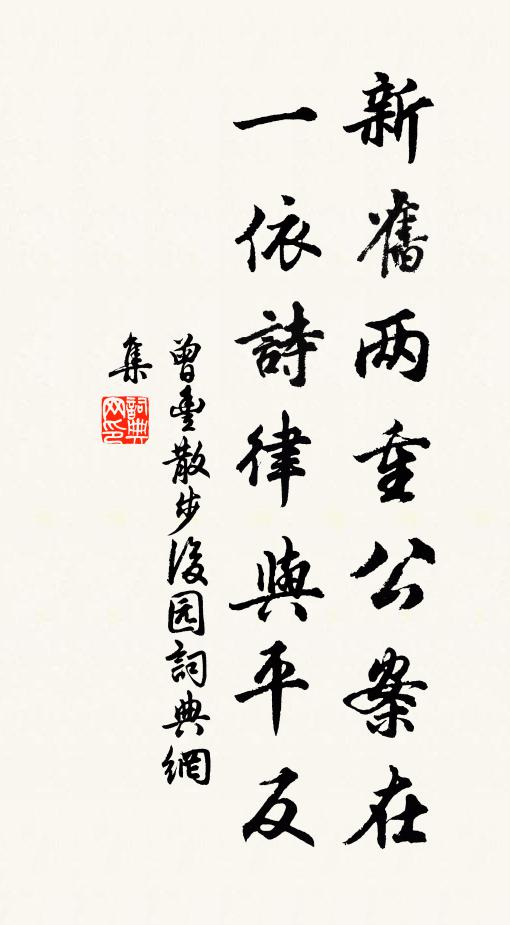 新舊两重公案在
一依詩律與平反
曾豐散步後园詞典網
集
詞典
网印